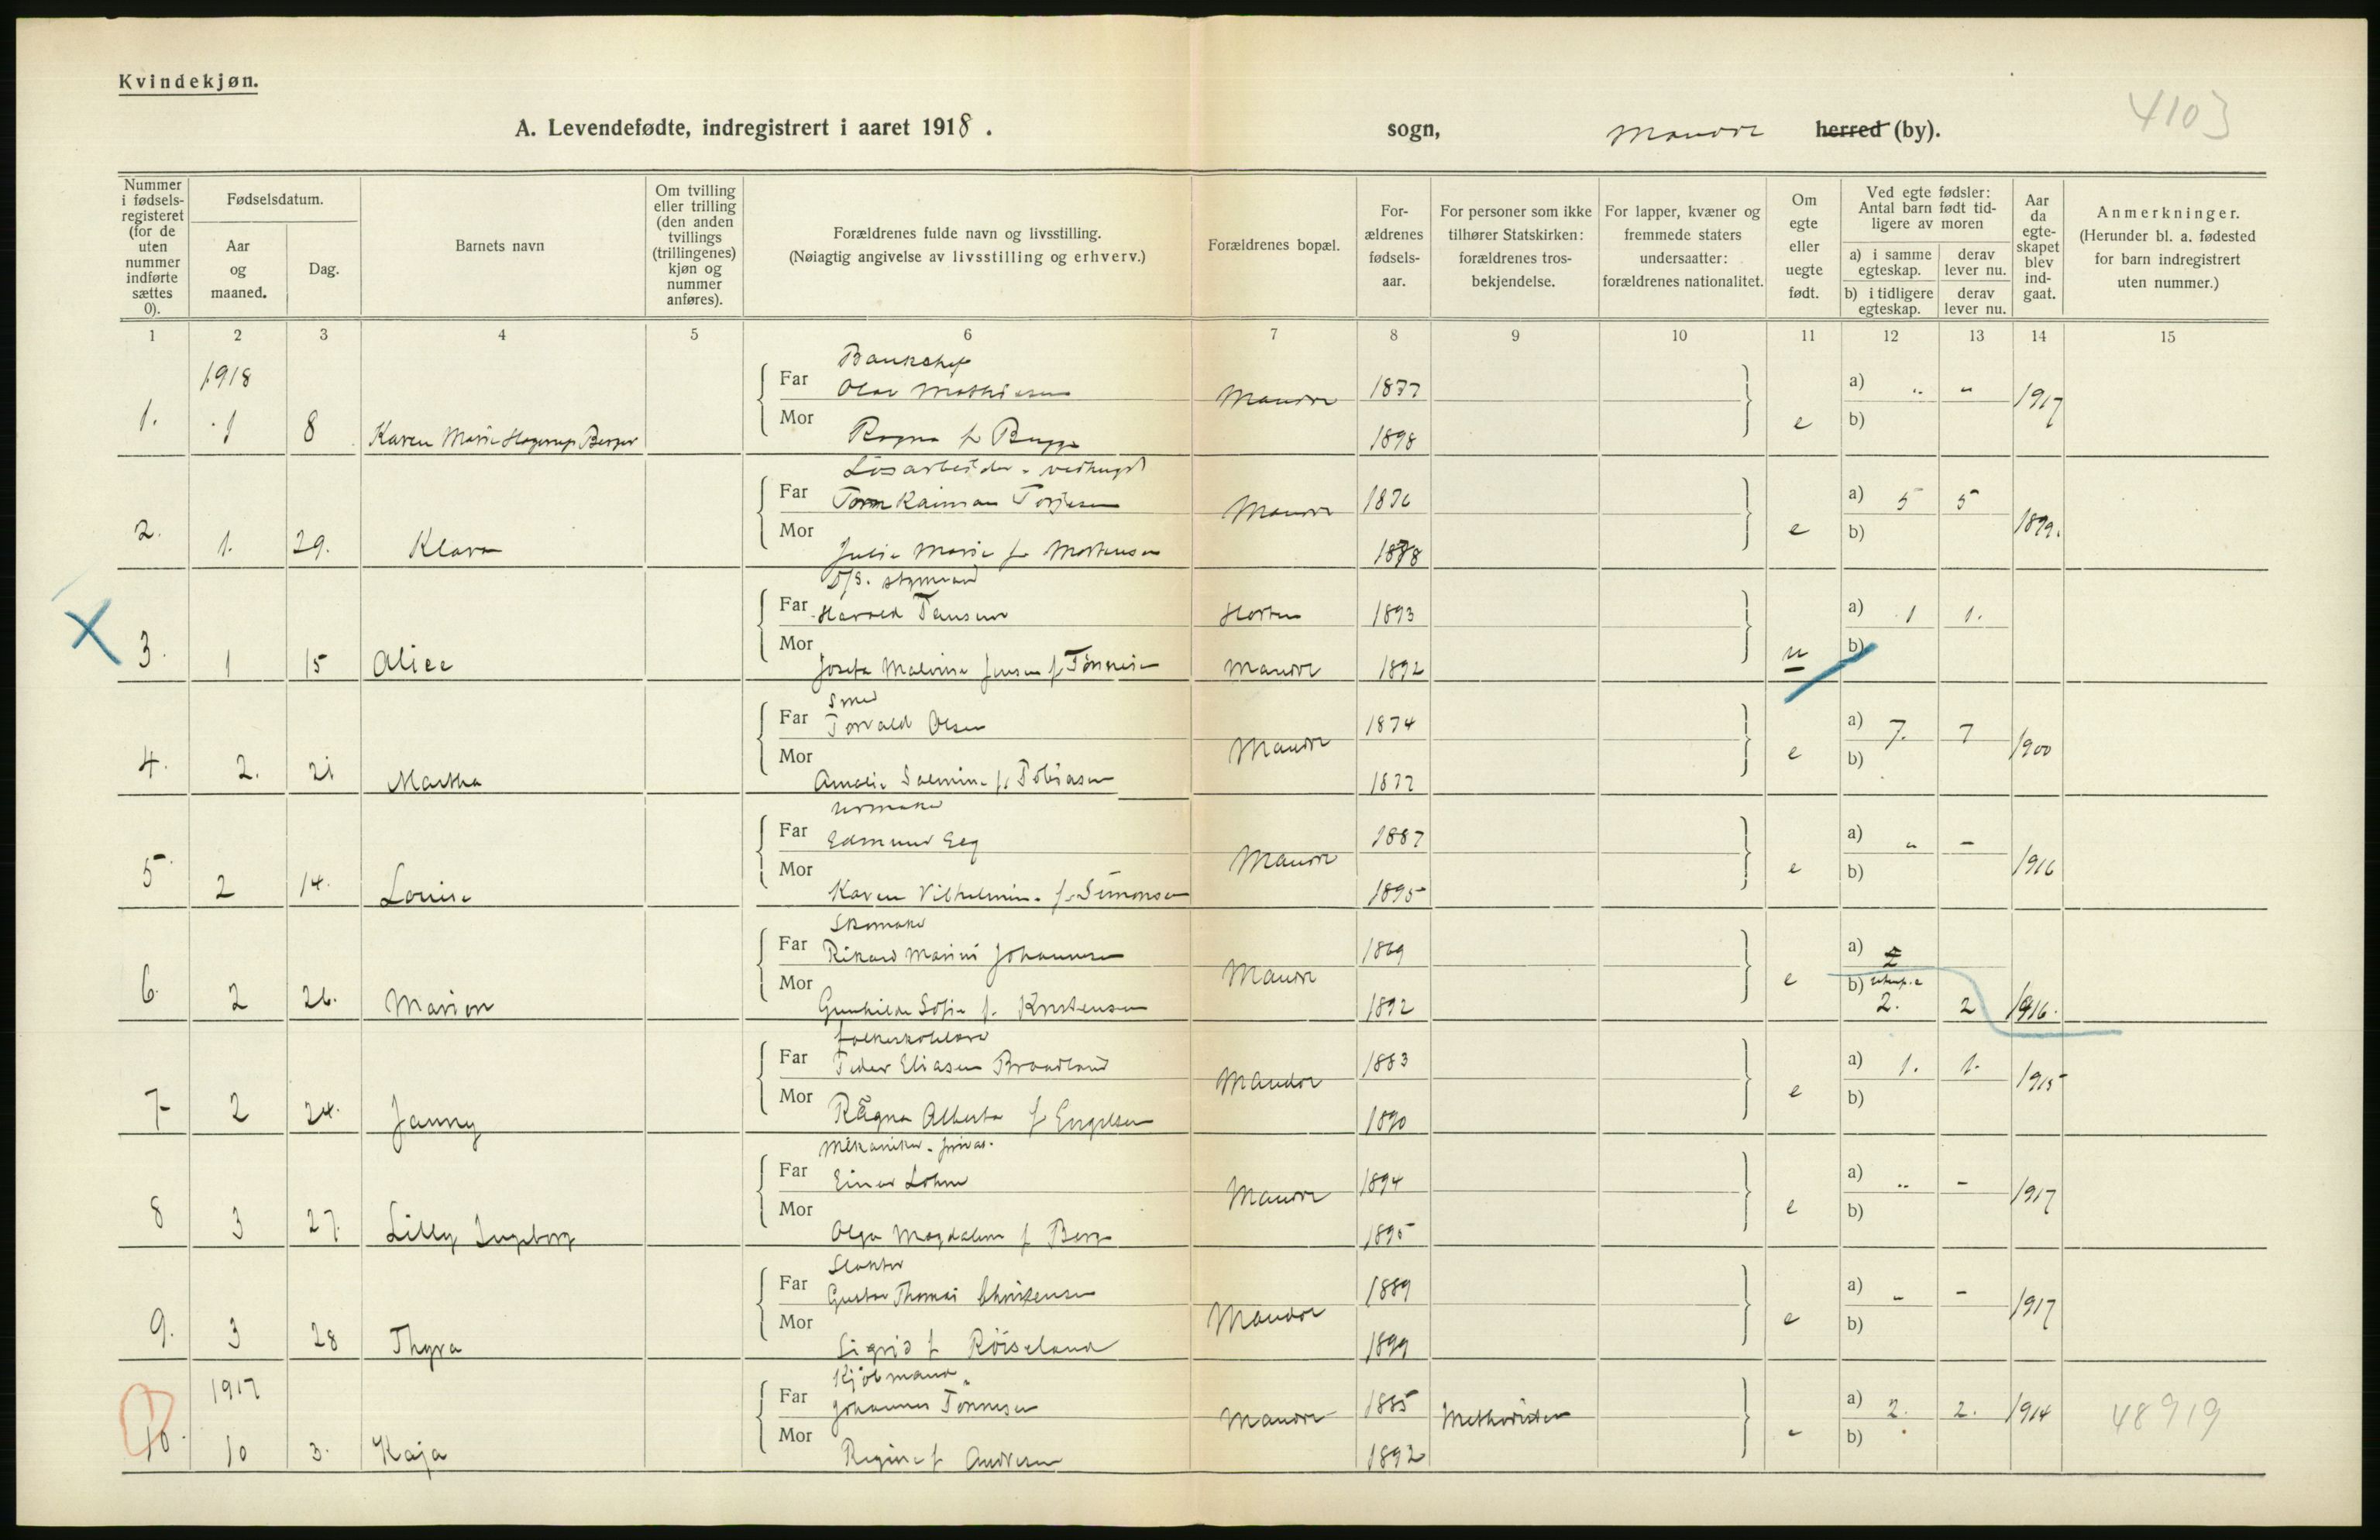 Kvindekjøn.
4103
A. Levendefødte, indregistrert i aaret 1918. sogn, herred (by).
Nummer i fødsels-registeret (for de uten nummer indførte sættes 0).
Fødselsdatum.
Aar og maaned.
Dag.
Barnets navn
Om tvilling eller trilling (den anden tvillings (trillingenes) kjøn og nummer anføres).
Forældrenes fulde navn og livsstilling.
(Nøiagtig angivelse av livsstilling og erhverv.)
Forældrenes bopæl.
For-ældrenes fødsels-aar.
For personer som ikke tilhører Statskirken: forældrenes tros-bekjendelse.
For lapper, kvæner og fremmede staters undersaatter: forældrenes nationalitet.
Om egte eller uegte født.
Ved egte fødsler: Antal barn født tid-ligere av moren
a) i samme egteskap.
derav lever nu.
b) i tidligere egteskap.
derav lever nu.
Aar da egte-skapet blev ind-gaat.
Anmerkninger.
(Herunder bl. a. fødested for barn indregistrert uten nummer.)
1 2 3 4 5 6 7 8 9 10 11 12 13 14 15
1918
Far Olav Mathiesen 1877 a) „ „ 1917
1. 1 8 Karen Marie e b)
Mor Ragna f. Bugge 1898
Løsarbeider
Far 1876 a) 5 5 1899.
2. 1. 29. Klara e b)
Mor Julie Marie f. Mortensen 1878
D/S. styrmand
Far Harald Horten 1893 a) 1 1.
3. 1 15 Alice u b)
Mor Josefa Malvine Jensen f. Tønnesen 1892
Smed
Far Torvald Olsen 1874 a) 7. 7 1900
4. 2. 21 Martha e b)
Mor Amalie f. Tobiasen 1877
Urmaker
Far Edmund Eeg 1887 a) „ - 1916
5. 2 14. Louise e b)
Mor Karen Vilhelmine f. Simonsen 1895
Skomaker
Far Rikard Marius Johannesen 1869 a) 2
6. 2 26. Marion e b) 2. 2 1916.
Mor Gunhilde Sofie f. Kristensen 1892
Folkeskolelærer
Far Peder Eliasen Braadland Mandal 1883 a) 1. 1. 1915
7 2 24. Janny e b)
Mor Ragna Alberta f. Engelsen 1890
Mekaniker
Far Einar Lohne 1894 a) „ - 1917
8 3 27. Lilly Ingeborg e b)
Mor Olga Magdalene f. Berge 1895
Slakter
Far Gustav Thomas Christensen Mandal 1889 a) - - 1917
9. 3 28 Thyra e b)
Mor Sigrid f. Röiseland 1899
1917 Kjøbmand
Far Johannes Tønnesen 1885 Methodister a) 2. 2. 1914 48919
10. 10 3. Kaja e b)
Mor Regine f. Andresen 1892